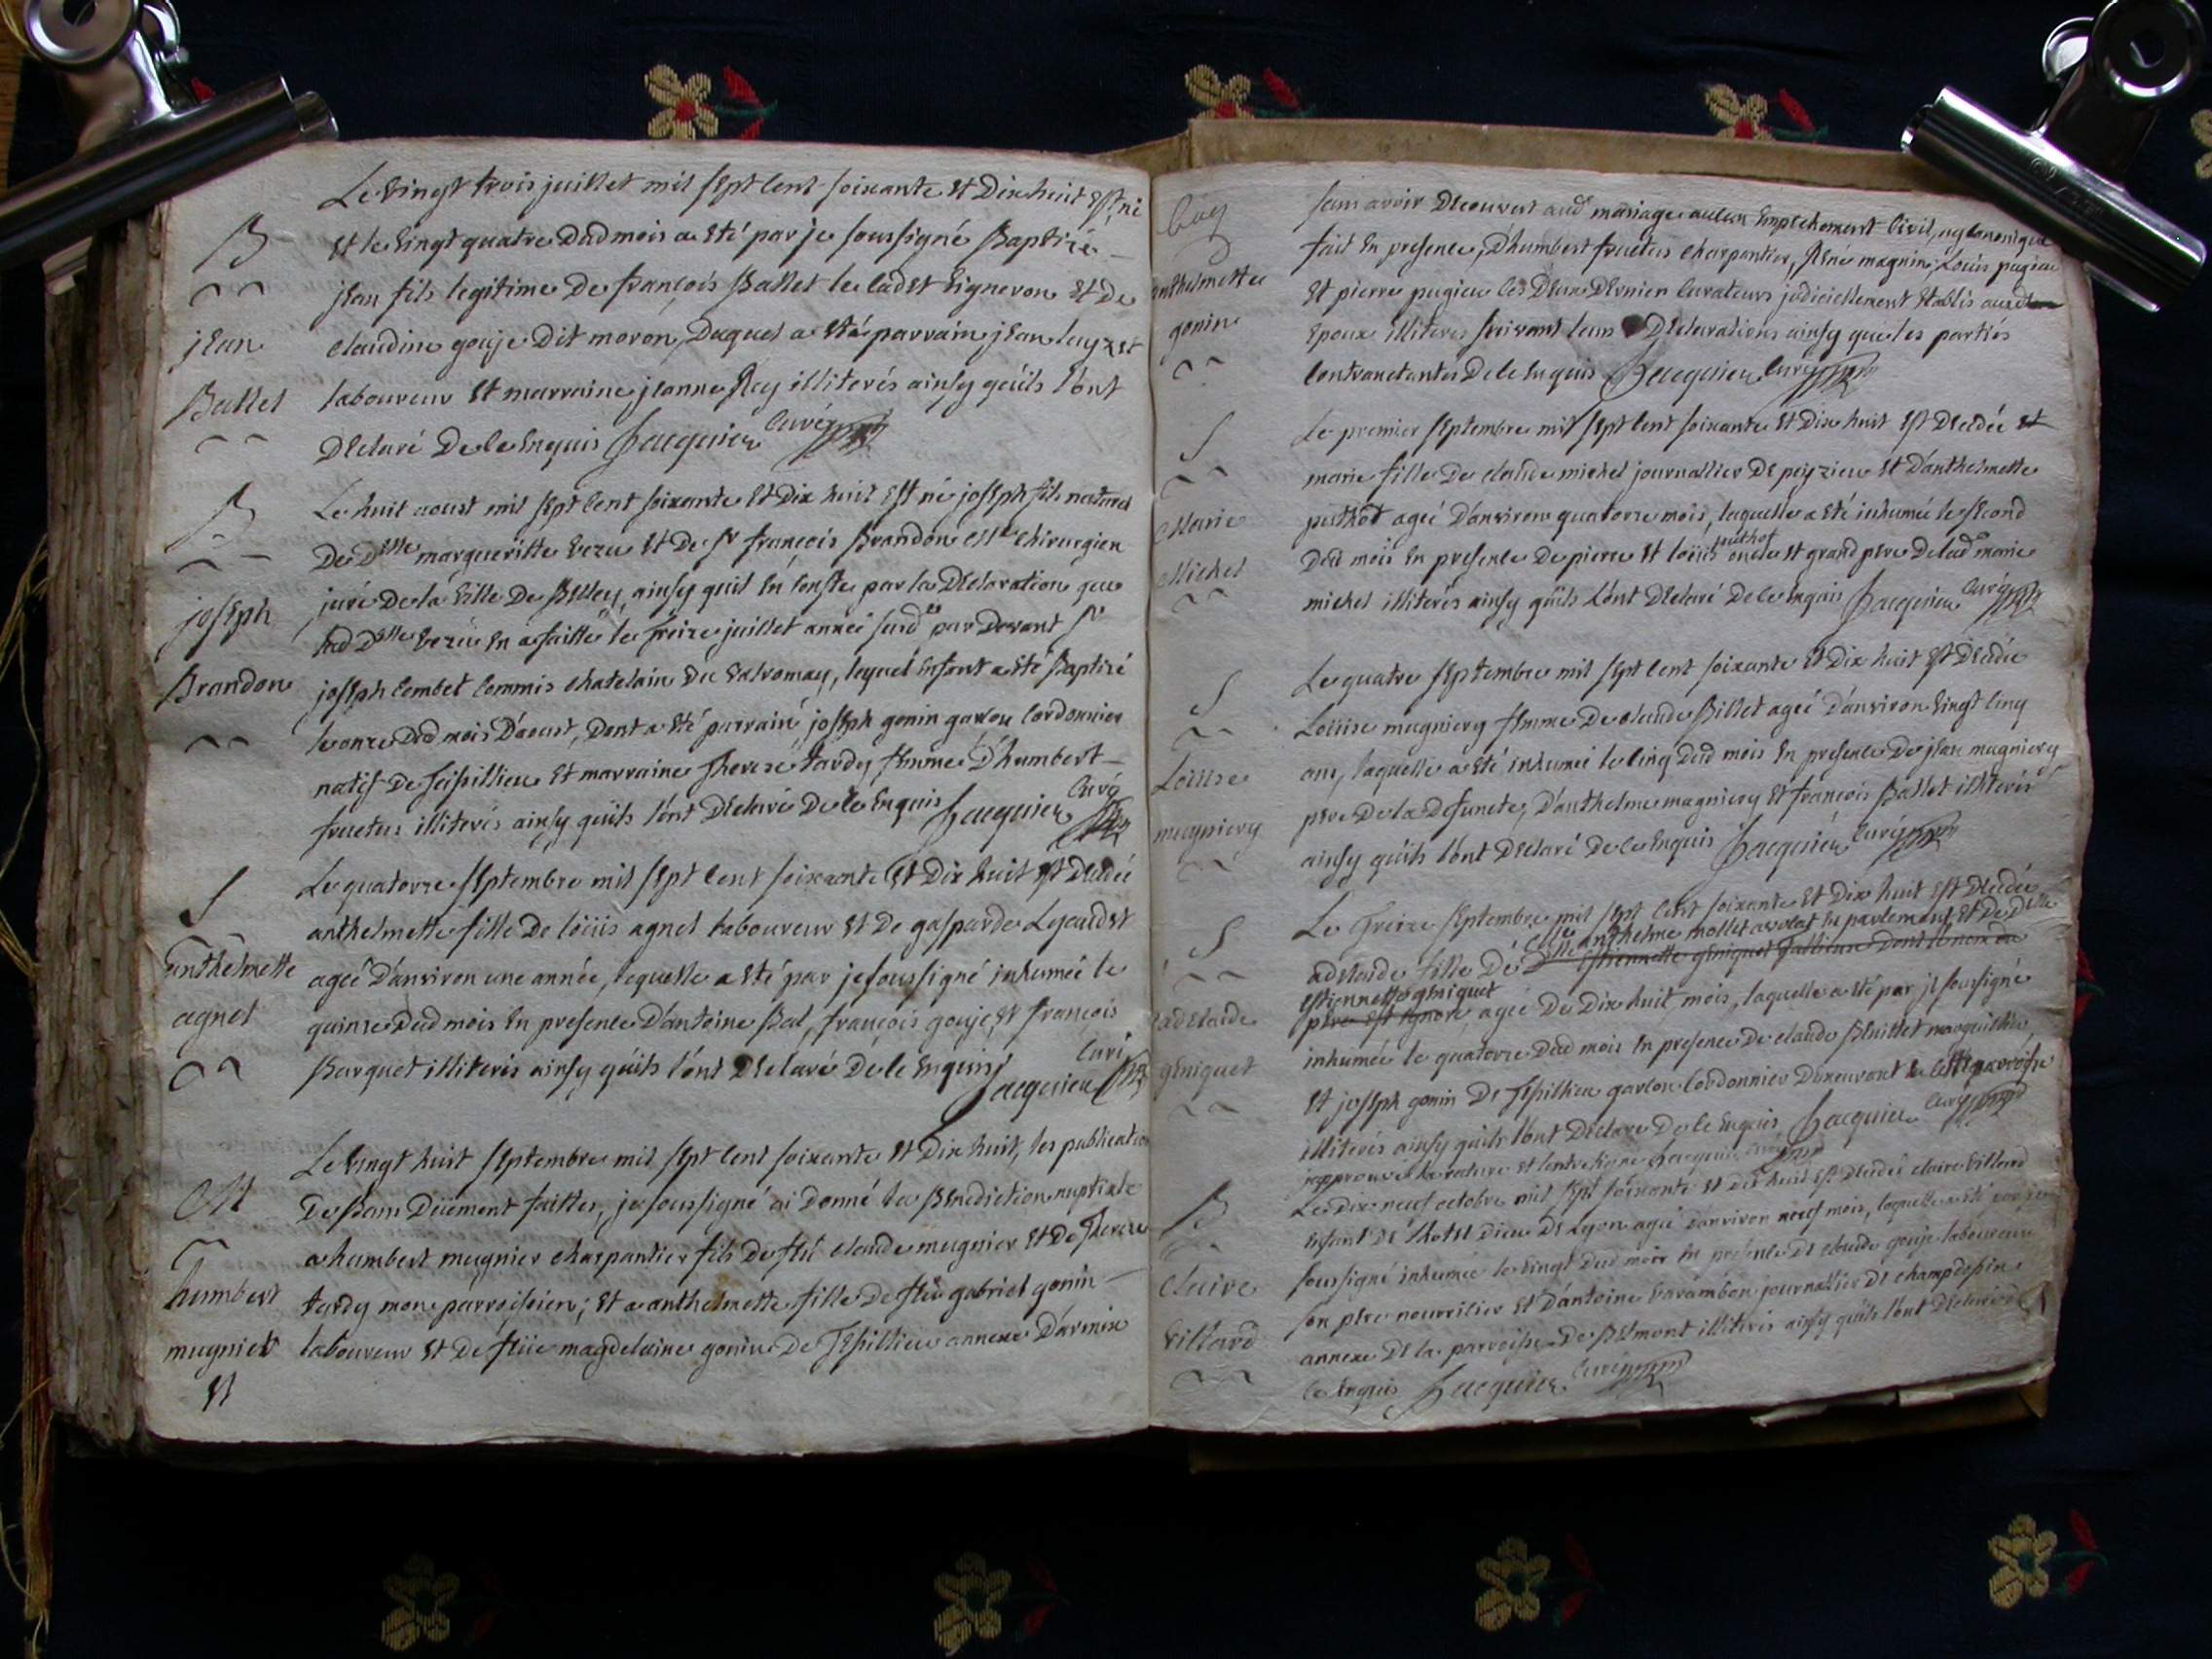 Le vingt trois juillet mil sept cent soixante et dix huit est né
B et le vingt quatre dud mois a eté par je soussigné Baptizé
jean fils legitime de françois Ballet le cadet vigneron et de
jean claudine gouje dit moron, duquel a eté parrain jean
Ballet laboureur et marraine jeanne Rey illiterés ainsy qu'ils l'ont
declaré de ce enquis Jacquier curé
B Le huit aoust mil sept cent soixante et dix huit est né joseph fils naturel
de dlle margueritte et de sr françois Brandon chirurgien
juré de la ville de Belley, ainsy quil en conste par la declaration que
joseph lad dlle en a faitte le treize juillet année susde par devant sr
Brandon joseph commis chatelain du valromay, lequel enfant a eté Baptizé
le onze dud mois d'aoust, dont a eté parrain joseph gonin garçon cordonnier
natif de et marraine therese tardy femme d'humbert
fructus illiterés ainsy qu'ils l'ont declaré de ce enquis Jacquier curé
S Le quatorze septembre mil sept cent soixante et dix huit est decedée
anthelmette fille de loüis agnel laboureur et de gasparde
anthelmette ageé d'anviron une année, lequelle a eté par je soussigné inhumeé le
agnel quinze dud mois en presence d'antoine Bal, françois gouje, et françois
Barquet illiterés ainsy qu'ils l'ont declaré de ce enquis Jacquier curé
Le vingt huit septembre mil sept cent soixante et dix huit, les publication
M de Bans düement faittes, je soussigné ai donné la Benediction nuptiale
a humbert mugnier charpantier fils de feu claude mugnier et de therese
humbert tardy mon parroissien; et a anthelmette fille de feu gabriel gonin
mugnier laboureur et de feüe magdelaine gonin de annexe d'armix
et
sans avoir decouvert aud mariage aucun empechement civil, ny canonique
fait en presence, d'humbert fructus charpantier, René magnin, Loüis pugieu
anthelmette et pierre pugieu les deux dernier curateurs judiciellement etablis auxd
gonin epoux illiterés suivant leurs declarations ainsy que les parties
contractantes de ce enquis Jacquier curé
S Le premier septembre mil sept cent soixante et dix huit est decedée et
marie fille de claude michel journallier de peyzieu et d'anthelmette
Marie puthot ageé d'anviron quatorze mois, laquelle a eté inhumée le second
puthot
Michel dud mois en presence de pierre et loüis oncle et grand pere de lade marie
michel illiterés ainsy qu'ils l'ont declaré de ce enquis Jacquier curé
S Le quatre septembre mil sept cent soixante et dix huit est decedée
Loüise mugniery femme de claude Billet ageé d'anviron vingt cinq
Loüise ans, laquelle a eté inhumeé le cinq dud mois en presence de jean mugniery
mugniery pere de la defuncte, d'anthelme mugniery et françois Ballet illiterés
ainsy qu'ils l'ont declaré de ce enquis Jacquier curé
S Le treize septembre mil sept cent soixante et dix huit est decedée
anthelme mollet avocat en parlement et de dlle
adelaide fille de dlle estiennette geniquet dont le nom du
estiennette geniquet
adelaide pere est ignoré ageé de dix huit mois, laquelle a eté par je soussigné
inhumée le quatorze dud mois en presence de claude marguillier
geniquet et joseph gonin de garçon cordonnier demeurant en cette parroisse
illiterés ainsy qu'ils l'ont declaré de ce enquis Jacquier curé
japprouve la rature et contresigne Jacquier curé
B Le dix neuf octobre mil sept soixante et dix huit est decedée claire villard
enfant de l'hotel dieu de Lyon ageé d'anviron neuf mois, laquelle a eté par je
Claire soussigné inhumée le vingt dud mois en presence de claude gouje laboureur
son pere nourricier et d'antoine varambon journallier de
villard annexe de la parroisse de Belmont illiterés ainsy qu'ils l'ont declaré de
ce enquis Jacquier curé